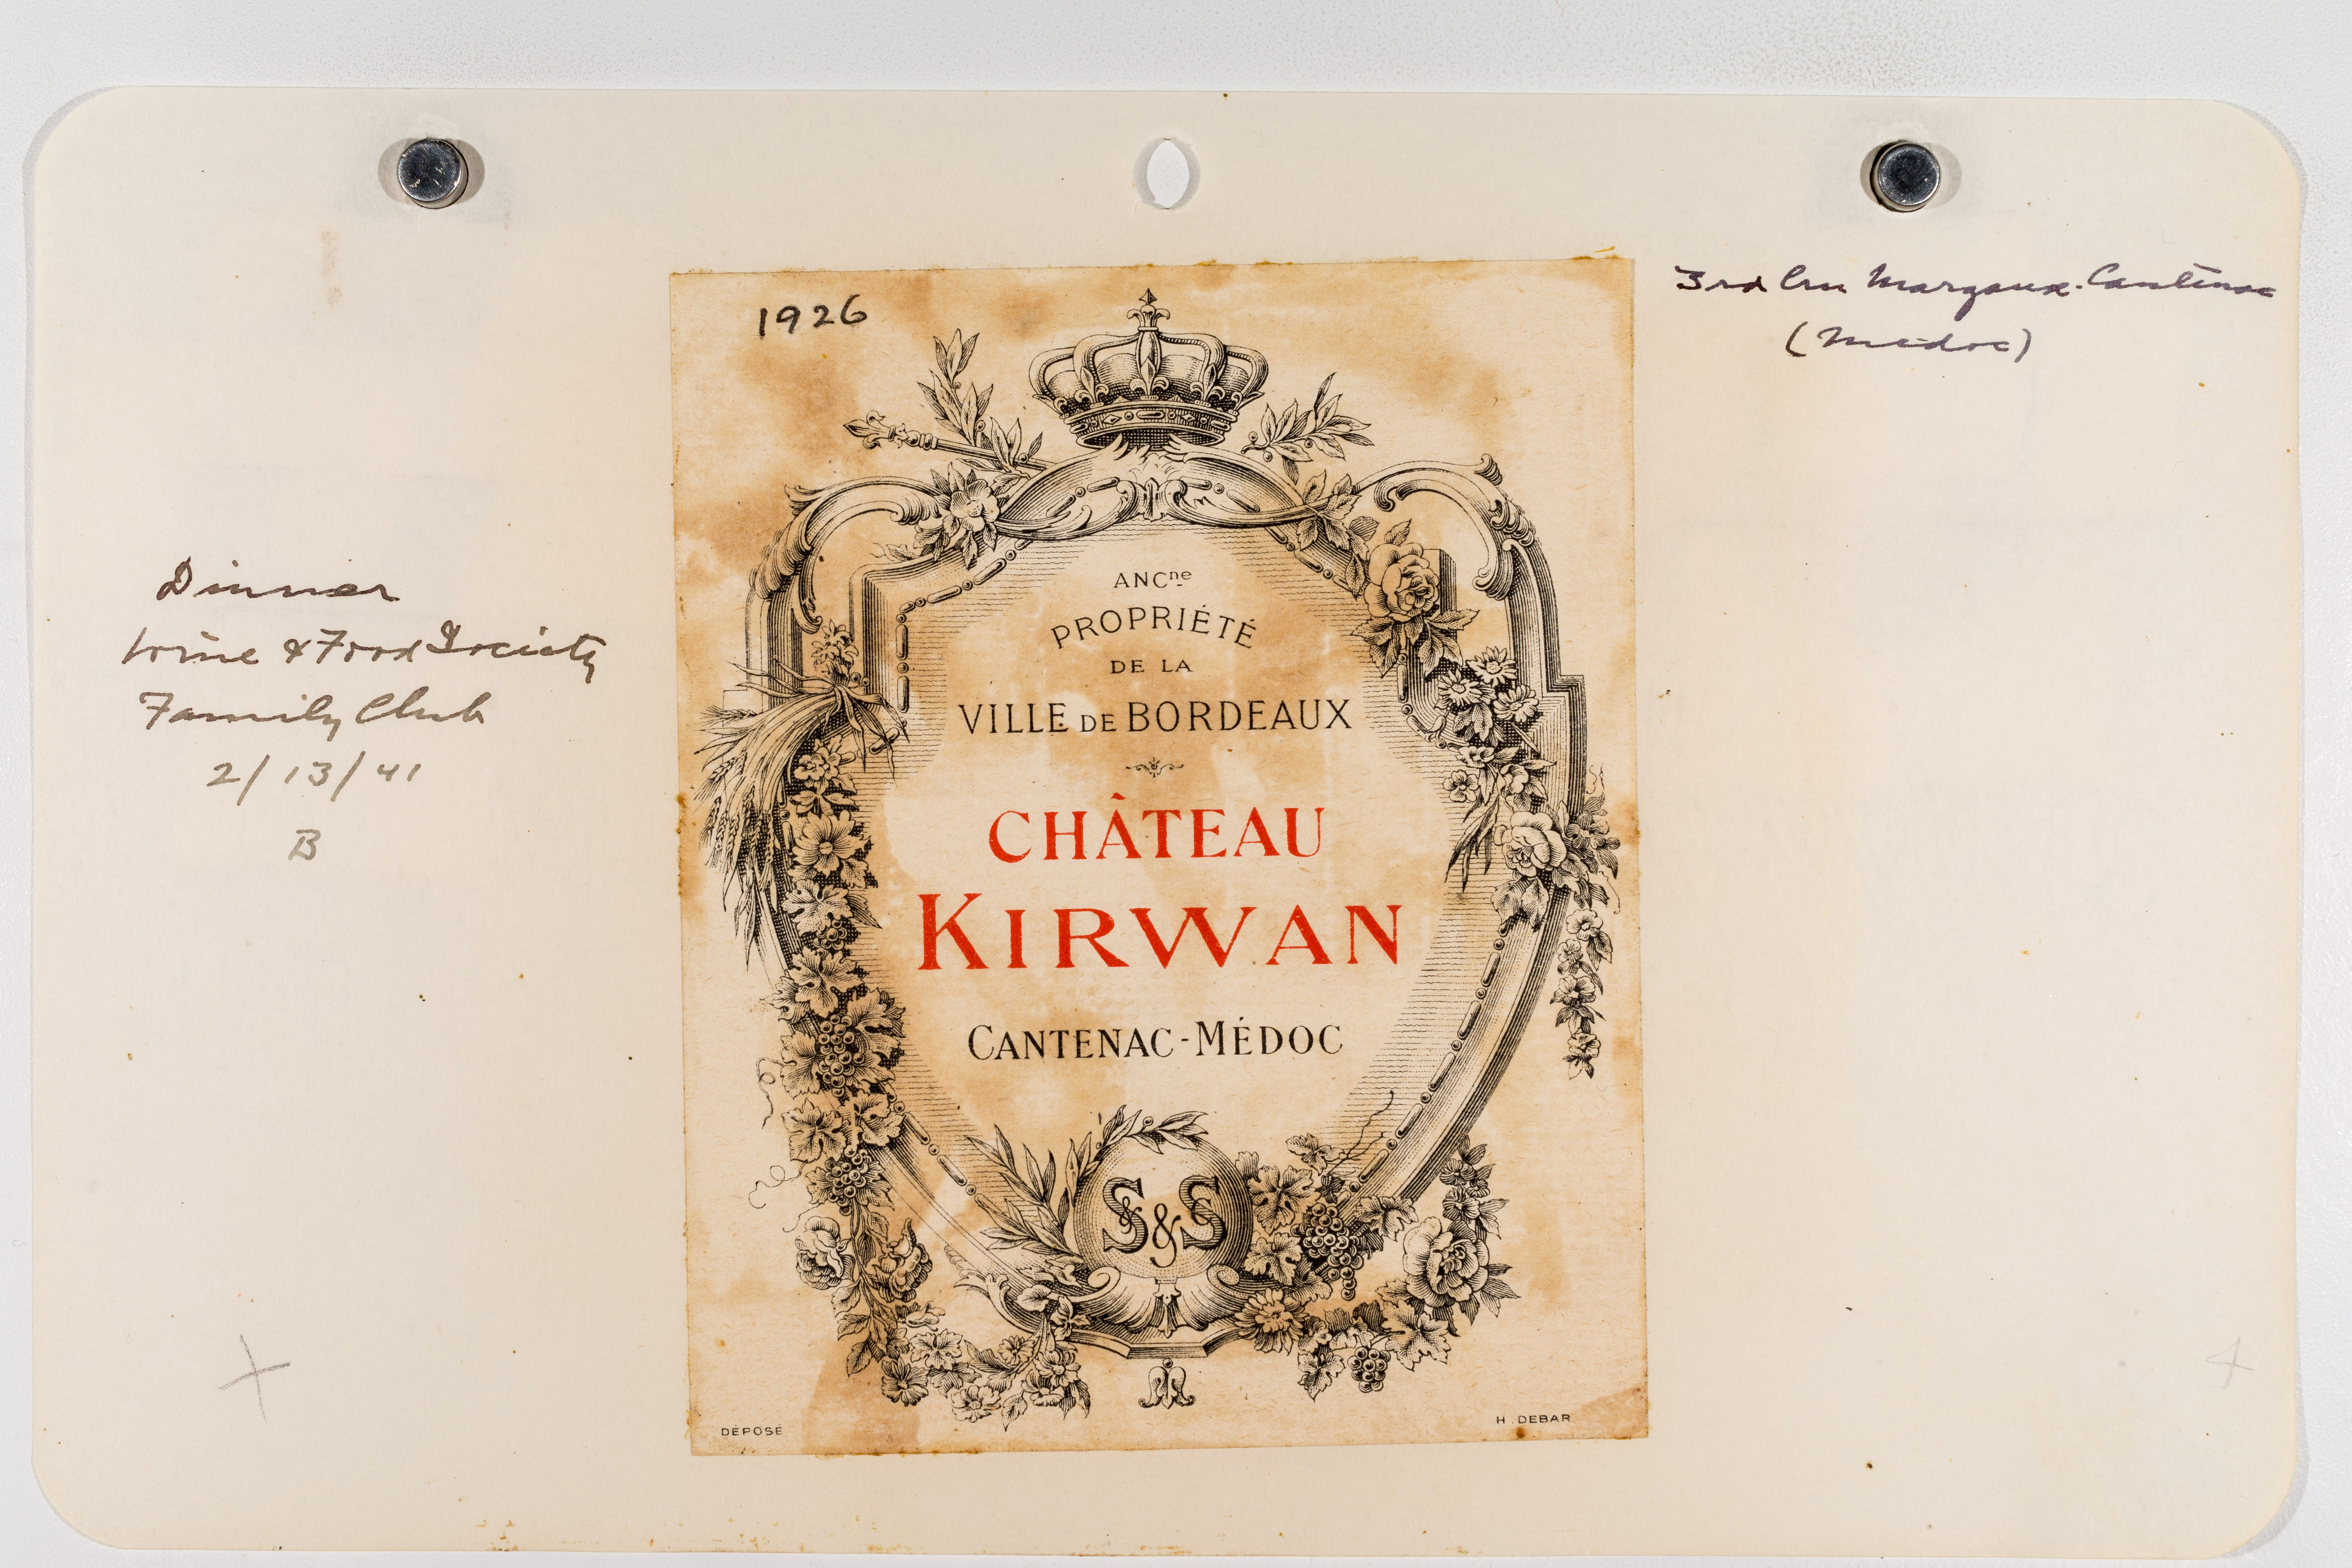 1926
3rd Cru Margaux-Cantenac
(Medoc)
Dinner
Wine & Food Society
Family Club
2/13/41
B
ANCne
PROPRIÉTÉ
DE LA
VILLE DE BORDEAUX
CHÂTEAU
KIRWAN
CANTENAC-MÉDOC
S&S
DÉPOSÉ
H. DEBAR